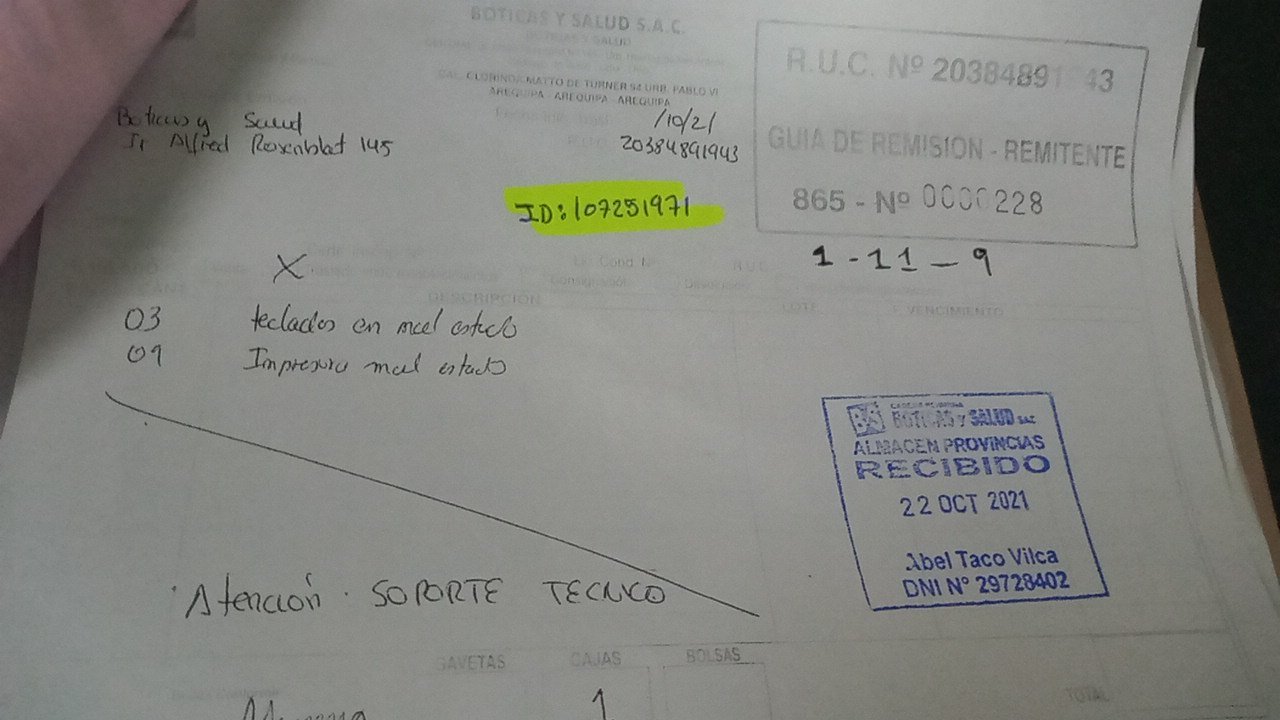 BOTICAS Y SALUD S.A.C.
BOTICAS Y SALUD
CAL. CLORINDA MATTO DE TURNER 94 URB. PABLO VI
AREQUIPA - AREQUIPA - AREQUIPA
R.U.C. Nº 20384891 43
GUIA DE REMISION - REMITENTE
865 - Nº 0000228
Boticas y Salud
Jr Alfred Rosenblat 145
/10/21
20384891943
ID: 107251971
1 - 11 - 9
X
DESCRIPCION
LOTE
F. VENCIMIENTO
03 teclados en mal estado
01 Impresora mal estado
BS BOTICAS Y SALUD SAC
ALMACEN PROVINCIAS
RECIBIDO
22 OCT 2021
Abel Taco Vilca
DNI Nº 29728402
Atención SOPORTE TECNICO
GAVETAS
CAJAS
BOLSAS
1
TOTAL